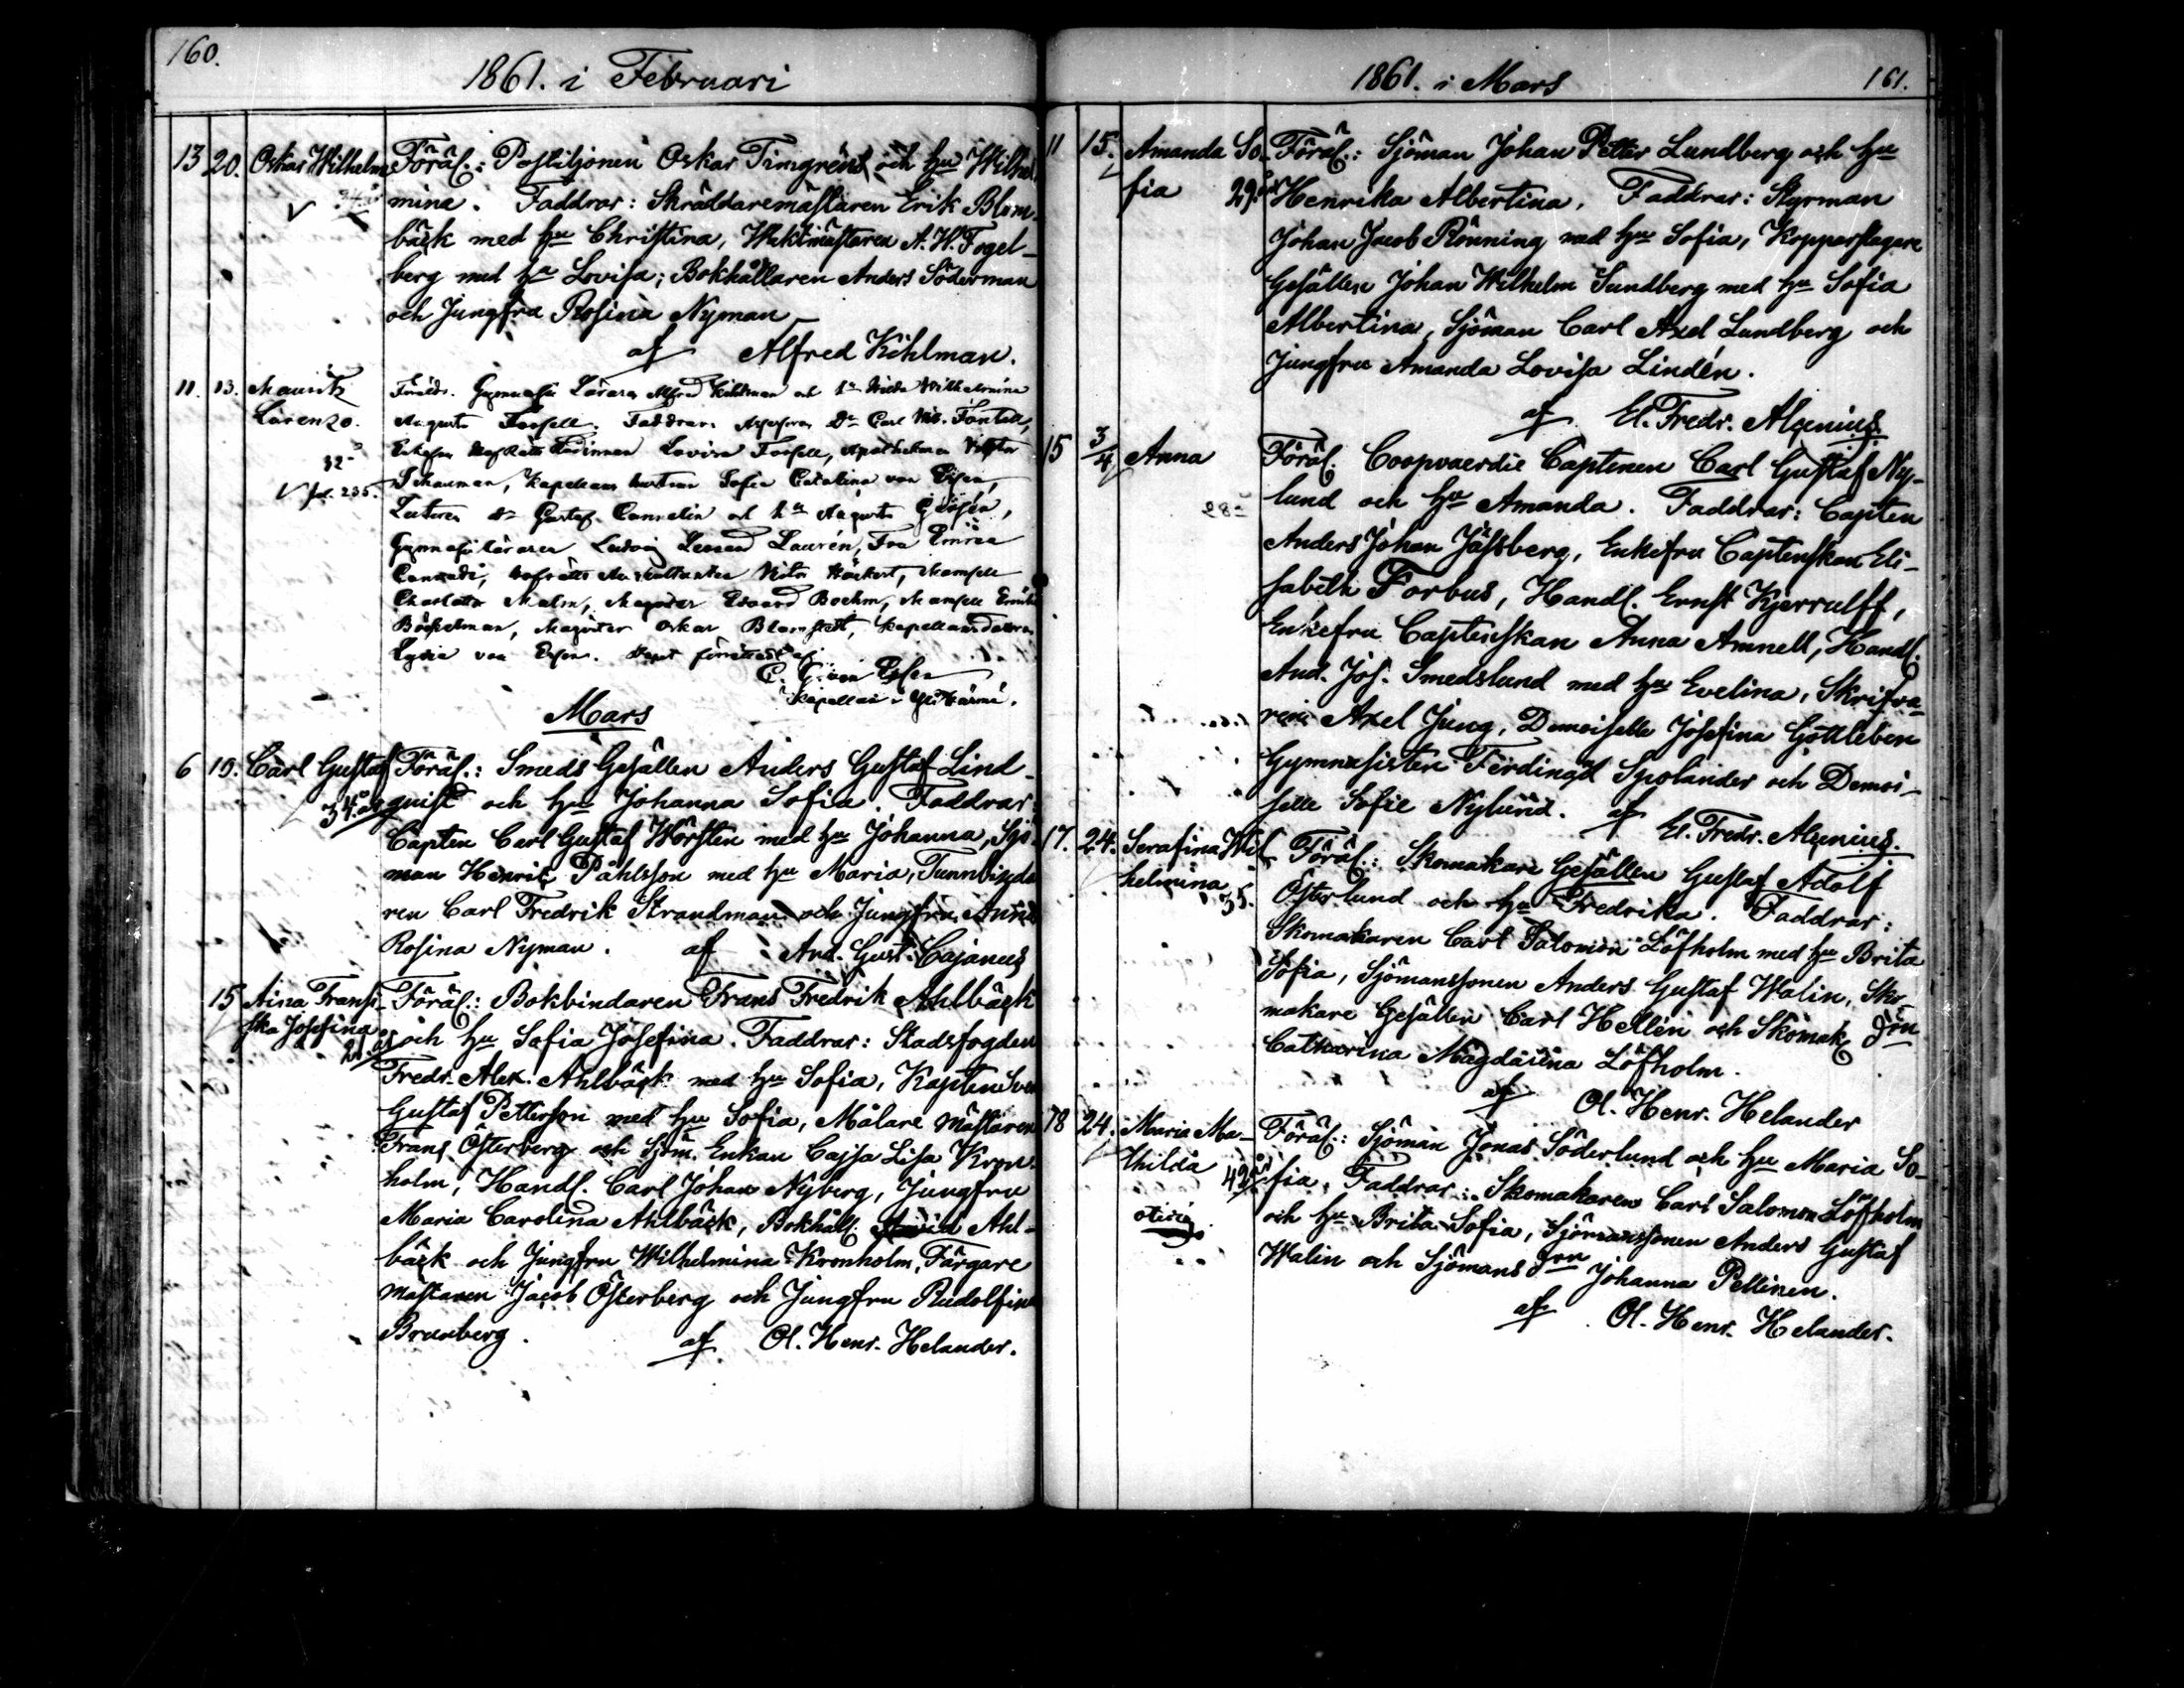 160.
1861. i Februari
13 20. Oskar Wilhelm Föräl.: Postiljonen Oskar Timgrén och hu Wilhel-
mina. Faddrar: Skräddaremästaren Erik Blom-
bäck med hu Christina, Waktmästaren A. W. Fogel-
berg med hu Lovisa; Bokhållaren Anders Söderman
och Jungfru Rosina Nyman
af Alfred Kihlman.
11. 13. Mauritz Föräldr. Gymnasii Läraren Alfred Kihlman och hu Hilda Wilhelmina
Lorenzo. Augusta Forsell. Faddrar: Assessoren Dr Carl Fontell,
32 Enkefru Lovisa Forsell, Apothekaren Victor
fol. 235. Schauman, Kapellans hustrun Sofia Catharina von Essen,
Lectoren Dr Gustaf Cannelin och hu Augusta
Gymnasii läraren Ludvig Leonard Laurén, Fru Emma
Hofrätts Auskultanten Victor Höckert, Mamsell
Charlotta Malm, Magister Edvard Boehm, Mamsell Emilie
Böckelman, Magister Oskar Blomstedt, Kapellansdottren
Lydia von Essen. Döpt förrättadt af
C. G. von Essen
Kapellan i Ylihärmä.
Mars
6 10. Carl Gustaf Föräl.: Smeds Gesällen Anders Gustaf Lind-
34 år quist och hu Johanna Sofia. Faddrar:
Capten Carl Gustaf Wörsten med hu Johanna, Sjö-
man Henric Påhlsson med hu Maria, Tunnbinda-
ren Carl Fredrik Strandman och Jungfru Anna
Rosina Nyman. af And. Gust. Cajanus
15 Aina Fransi- Föräl.: Bokbindaren Frans Fredrik Ahlbäck
ska Josefina och hu Sofia Josefina. Faddrar: Stadsfogden
Fredr. Alex. Ahlbäck med hu Sofia, Kapten Sven
Gustaf Petterson med hu Sofia, Målare Mästaren
Frans Österberg och Sjöm. Enkan Cajsa Lisa Kron-
holm, Handl. Carl Johan Nyberg, Jungfru
Maria Carolina Ahlbäck, Bokhåll. Ahl-
bäck och Jungfru Wilhelmina Kronholm, Färgare
mästaren Jacob Österberg och Jungfru Rudolfina
Brunberg. af Ol. Henr. Helander.
1861. i Mars 161.
11 15. Amanda So- Föräl.: Sjöman Johan Petter Lundberg och hu
fia 29. Henrika Albertina. Faddrar: Styrman
Johan Jacob Rönning med hu Sofia, Kopparslagare
Gesällen Johan Wilhelm Sundberg med hu Sofia
Albertina, Sjöman Carl Axel Lundberg och
Jungfru Amanda Lovisa Lindén.
af El. Fredr. Alcenius
15 3/4 Anna Föräl. Coopvaerdie Captenen Carl Gustaf Ny-
28 lund och hu Amanda. Faddrar: Capten
Anders Johan Jässberg, Enkefru Captenskan Eli-
sabeth Forbus, Handl. Ernst Kjerrulff,
Enkefru Captenskan Anna Amnell, Handl.
And. Jos. Smedslund med hu Evelina, Skrifva-
ren Axel Jung, Demoiselle Josefina Gottleben
Gymnasisten Ferdinand Spolander och Demoi-
selle Sofie Nylund. af El. Fredr. Alcenius.
17. 24. Serafina Wil- Föräl.: Skomakare Gesällen Gustaf Adolf
helmina 35. Österlund och hu Fredrika. Faddrar:
Skomakaren Carl Salomon Löfholm med hu Brita
Sofia, Sjömanssonen Anders Gustaf Walin, Sko-
makare Gesällen Carl Hellén och Skomak. drn
Catharina Magdalena Löfholm.
af Ol. Henr. Helander
18 24. Maria Ma- Föräl.: Sjöman Jonas Söderlund och hu Maria So-
thilda 42 år fia. Faddrar: Skomakaren Carl Salomon Löfholm
och hu Brita Sofia, Sjömanssonen Anders Gustaf
Walin och Sjömans drn Johanna Pellinen.
af Ol. Henr. Helander.